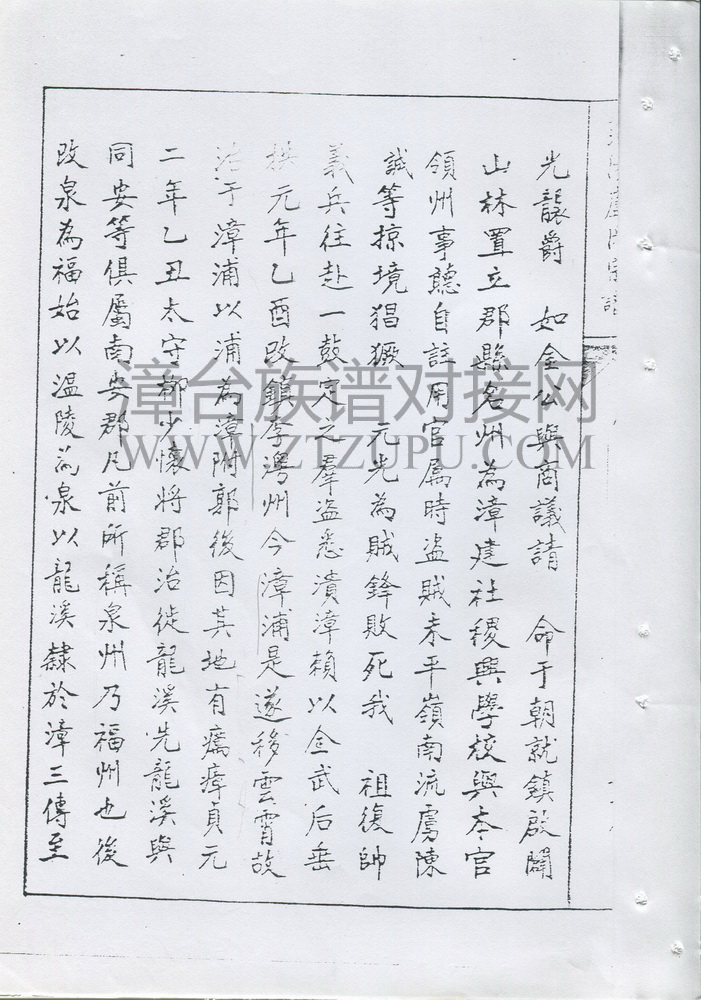 光襲爵 如金公與商議請 命于朝就鎮啟闢
山林置立郡縣名州為漳建社稷興學校與本官
領州事聽自註用官屬時盜賊未平嶺南流虜陳
誠等掠境猖獗 元光為賊鋒敗死我 祖復帥
義兵往赴一鼓定之羣盜悉潰漳賴以全武后垂
拱元年乙酉改鎮李澚州今漳浦是遂移雲霄故
治于漳浦以浦為漳附郭後因其地有癘瘴貞元
二年乙丑太守柳少懷將郡治徙龍溪先龍溪與
同安等俱屬南安郡凡前所稱泉州乃福州也後
改泉為福始以温陵為泉以龍溪隸於漳三傳至
漳台族谱对接网
WWW.ZTZUPU.COM